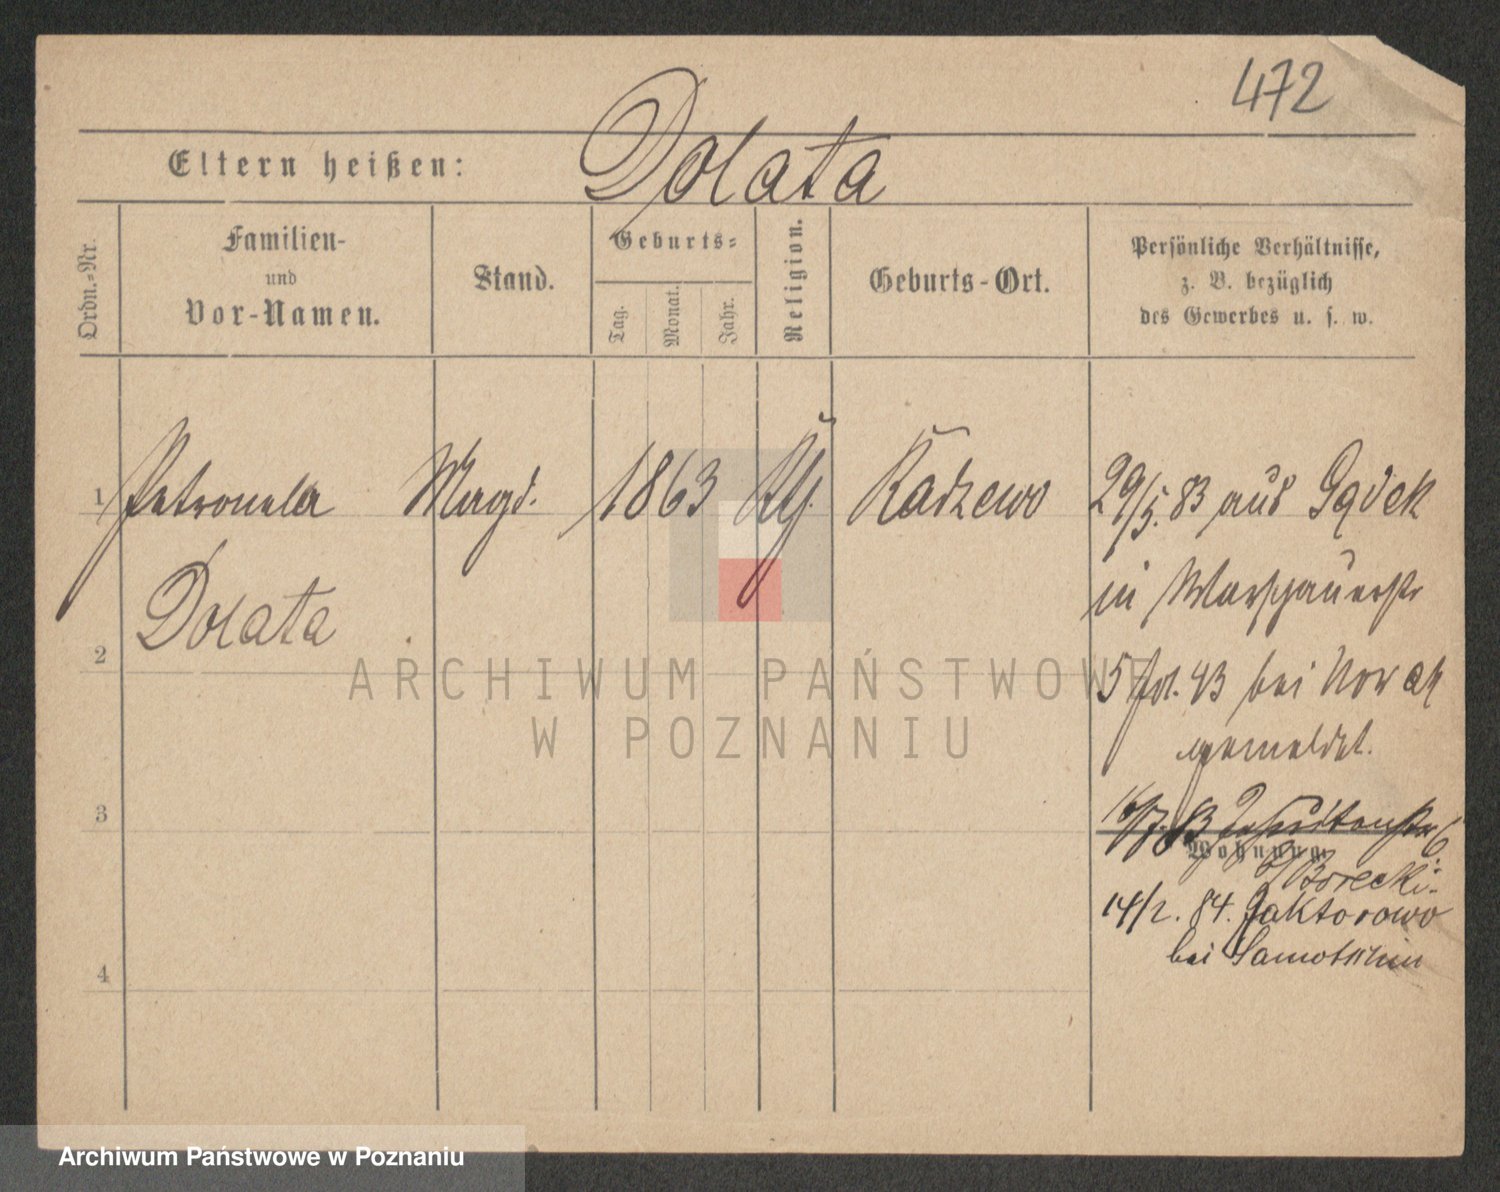 472
Eltern heißen: Dolata
Ordn.-Nr.
Familien-
und
Vor-Namen.
Stand.
Geburts-
Tag.
Monat.
Jahr.
Religion.
Geburts-Ort.
Persönliche Verhältnisse,
z. B. bezüglich
des Gewerbes u. s. w.
1 Petronela Magd. 1863 Kth. Radzewo 29/5. 83 aus
Dolata
in Warschauerstr
2
5 bei Nowak
gemeldet.
3
16/7. 83 6
Wohnung.
Borecki.
14/2. 84. Jaktorowo
bei Samotschin
4
ARCHIWUM PAŃSTWOWE
W POZNANIU
Archiwum Państwowe w Poznaniu